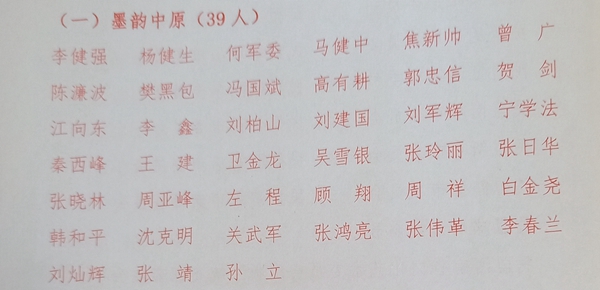 （一）墨韵中原（39人）
李健强 杨健生 何军委 马健中 焦新帅 曾 广
陈濂波 樊黑包 冯国斌 高有耕 郭忠信 贺 剑
江向东 李 鑫 刘柏山 刘建国 刘军辉 宁学法
秦西峰 王 建 卫金龙 吴雪银 张玲丽 张日华
张晓林 周亚峰 左 程 顾 翔 周 祥 白金尧
韩和平 沈克明 关武军 张鸿亮 张伟革 李春兰
刘灿辉 张 靖 孙 立